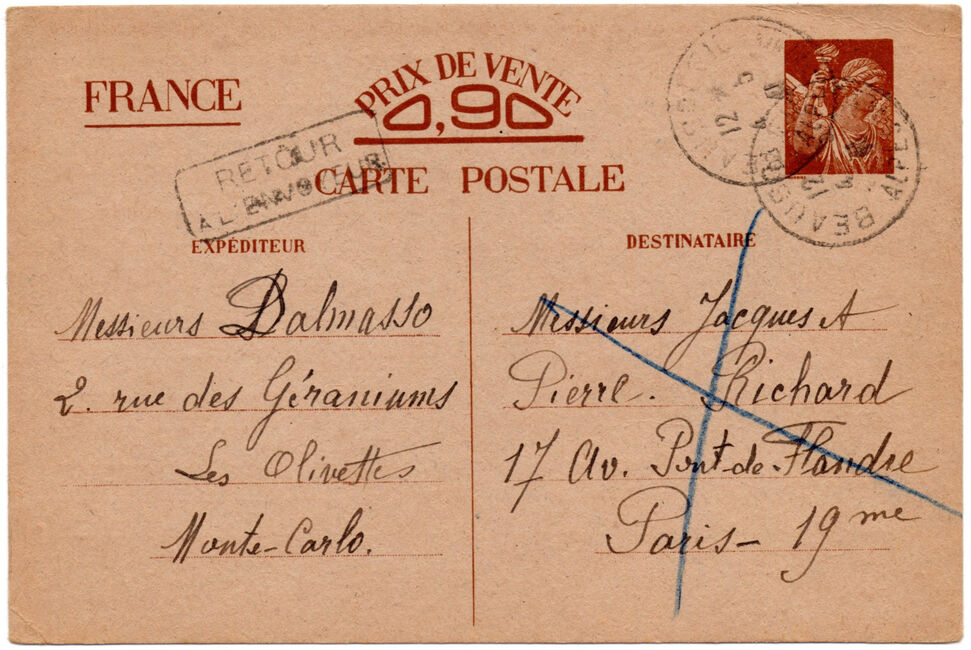 FRANCE
PRIX DE VENTE
0,90
RETOUR
A L'ENVOYEUR
CARTE POSTALE
EXPÉDITEUR
Messieurs Dalmasso
2. rue des Géraniums
Les Olivettes
Monte-Carlo.
DESTINATAIRE
Messieurs Jacques et
Pierre. Richard
17 Av. Pont-de-Flandre
Paris - 19me
BEAUSOLEIL
12
BEAUS
ALPES
12